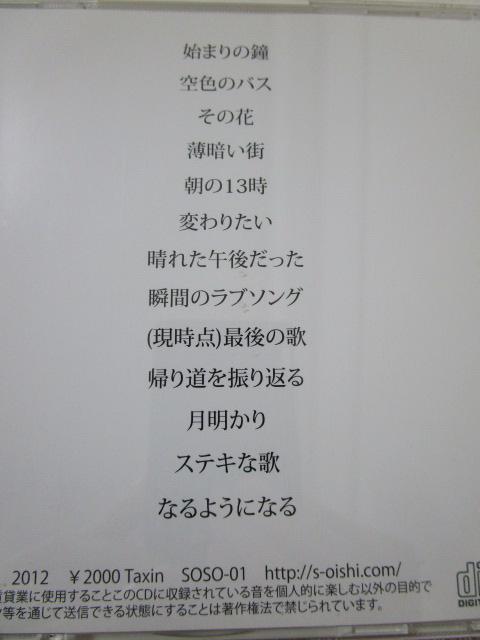 始まりの鐘
空色のバス
その花
薄暗い街
朝の13時
変わりたい
晴れた午後だった
瞬間のラブソング
(現時点)最後の歌
帰り道を振り返る
月明かり
ステキな歌
なるようになる
2012 ￥2000 Taxin SOSO-01 http://s-oishi.com/
貸業に使用することこのCDに収録されている音を個人的に楽しむ以外の目的で
等を通じて送信できる状態にすることは著作権法で禁じられています。